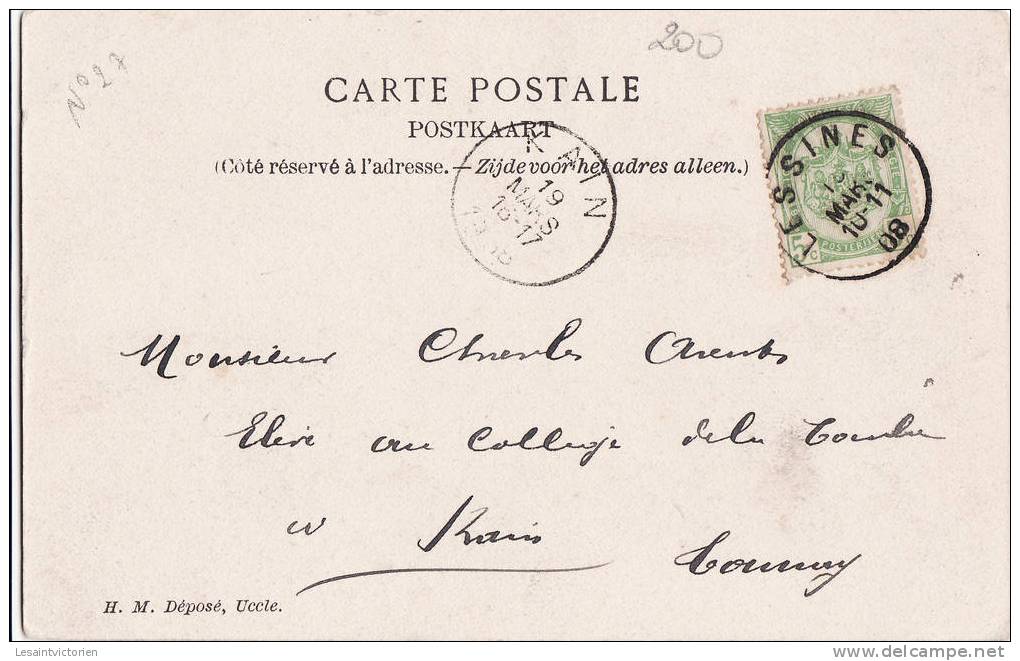 200
N° 27
CARTE POSTALE
POSTKAART
(Côté réservé à l'adresse. — Zijde voor het adres alleen.)
KAIN
19
MARS
16-17
1908
LESSINES
MARS
10-11
08
5 C
Monsieur Charles Arents
Elève au Collège de la Tombe
à Kain Tournay
H. M. Déposé, Uccle.
Lesaintvictorien
delcampe.net